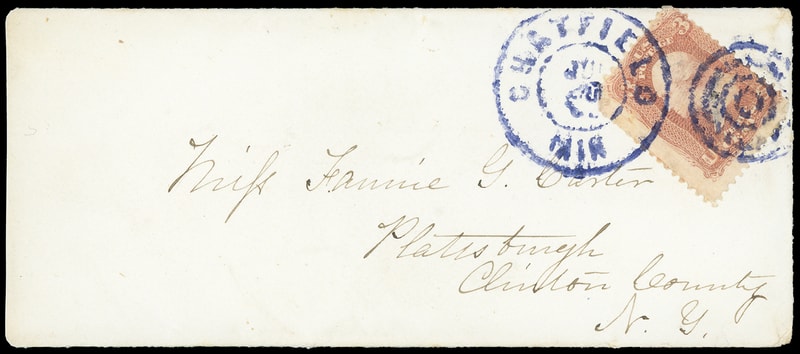 CHATFIELD
JUL
MIN
3
Miſs Fannie G. Carter
Plattsburgh
Clinton County
N. Y.